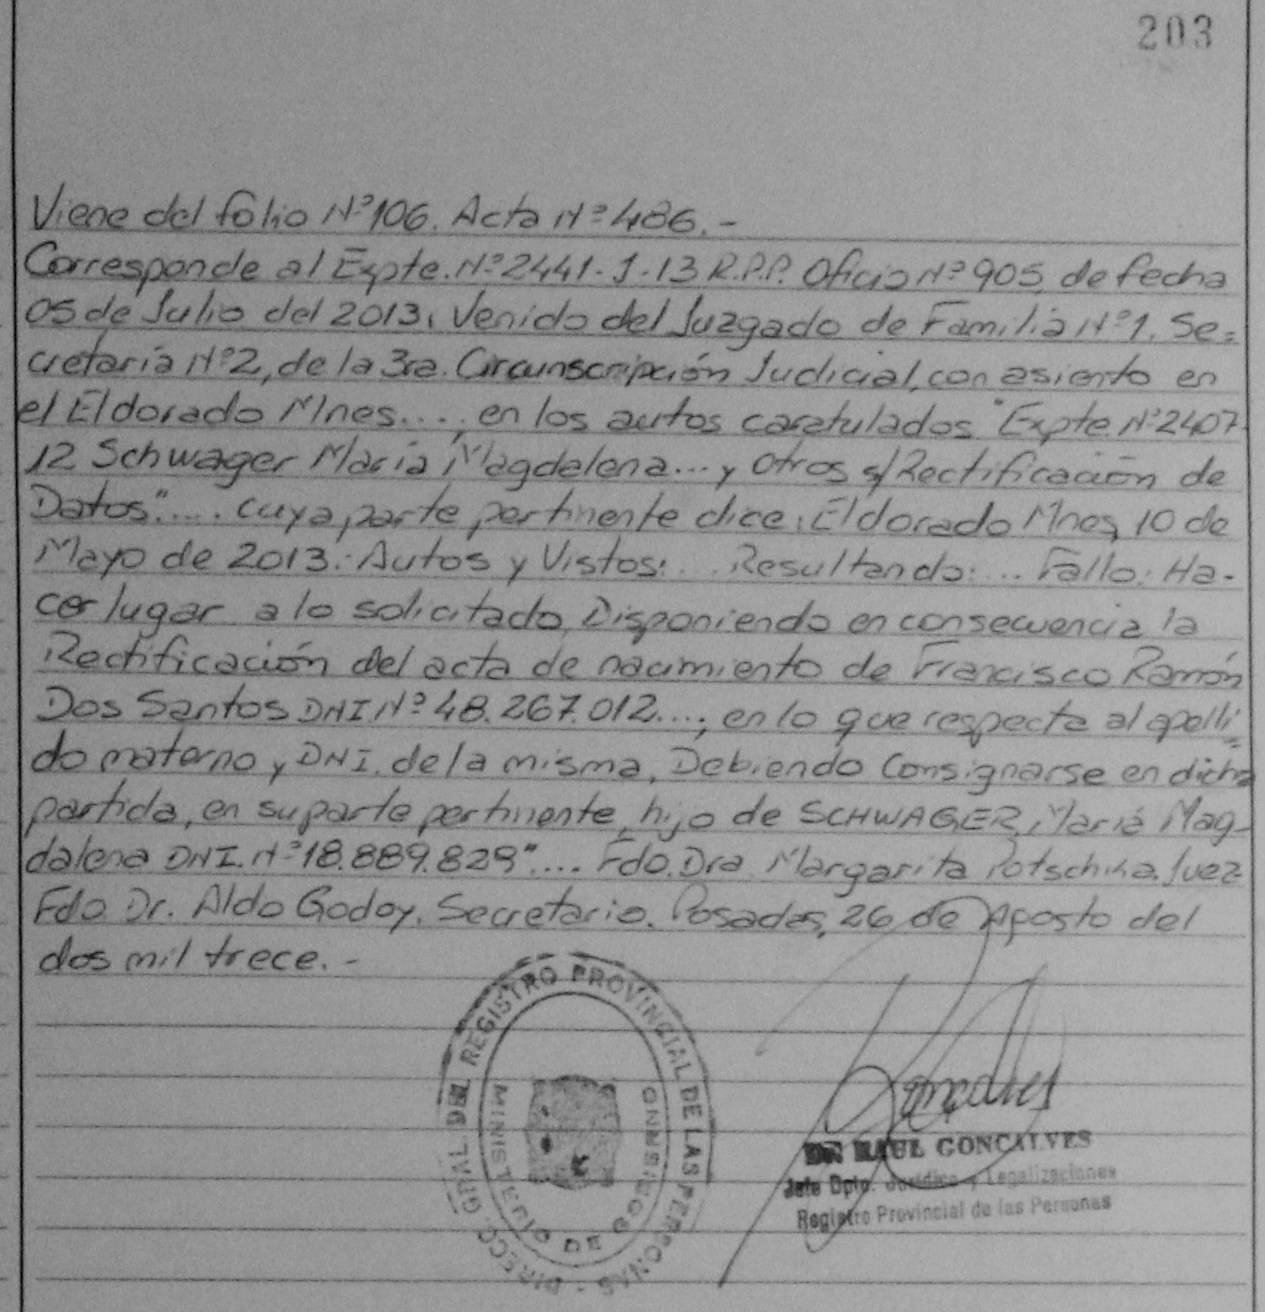 203
Viene del folio Nº 106. Acta Nº 486.-
Corresponde al Expte. Nº 2441-J-13 R.P.P. Oficio Nº 905 de fecha
05 de Julio del 2013, Venido del Juzgado de Familia Nº 1. Se=
cretaría Nº 2, de la 3ra. Circunscripción Judicial, con asiento en
el Eldorado Mnes...., en los autos caratulados "Expte Nº 2407
12 Schwager María Magdalena... y Otros s/Rectificación de
Datos"..... cuya parte pertinente dice: Eldorado Mnes, 10 de
Mayo de 2013.- Autos y Vistos:... Resultando:... Fallo: Ha-
cer lugar a lo solicitado, Disponiendo en consecuencia la
Rectificación del acta de nacimiento de Francisco Ramón
Dos Santos DNI Nº 48.267.012...., en lo que respecta al apelli=
do materno y DNI. de la misma, Debiendo Consignarse en dicha
partida, en su parte pertinente, hijo de SCHWAGER, María Mag-
dalena DNI. Nº 18.889.829".... Fdo. Dra Margarita Potschka. Juez
Fdo. Dr. Aldo Godoy. Secretario. Posadas, 26 de Agosto del
dos mil trece.-
DIRECC. GRAL. DEL REGISTRO PROVINCIAL DE LAS PERSONAS
MINISTERIO DE GOBIERNO
Goncalves
DR. RAUL GONCALVES
Jefe Dpto. Jurídico y Legalizaciones
Registro Provincial de las Personas